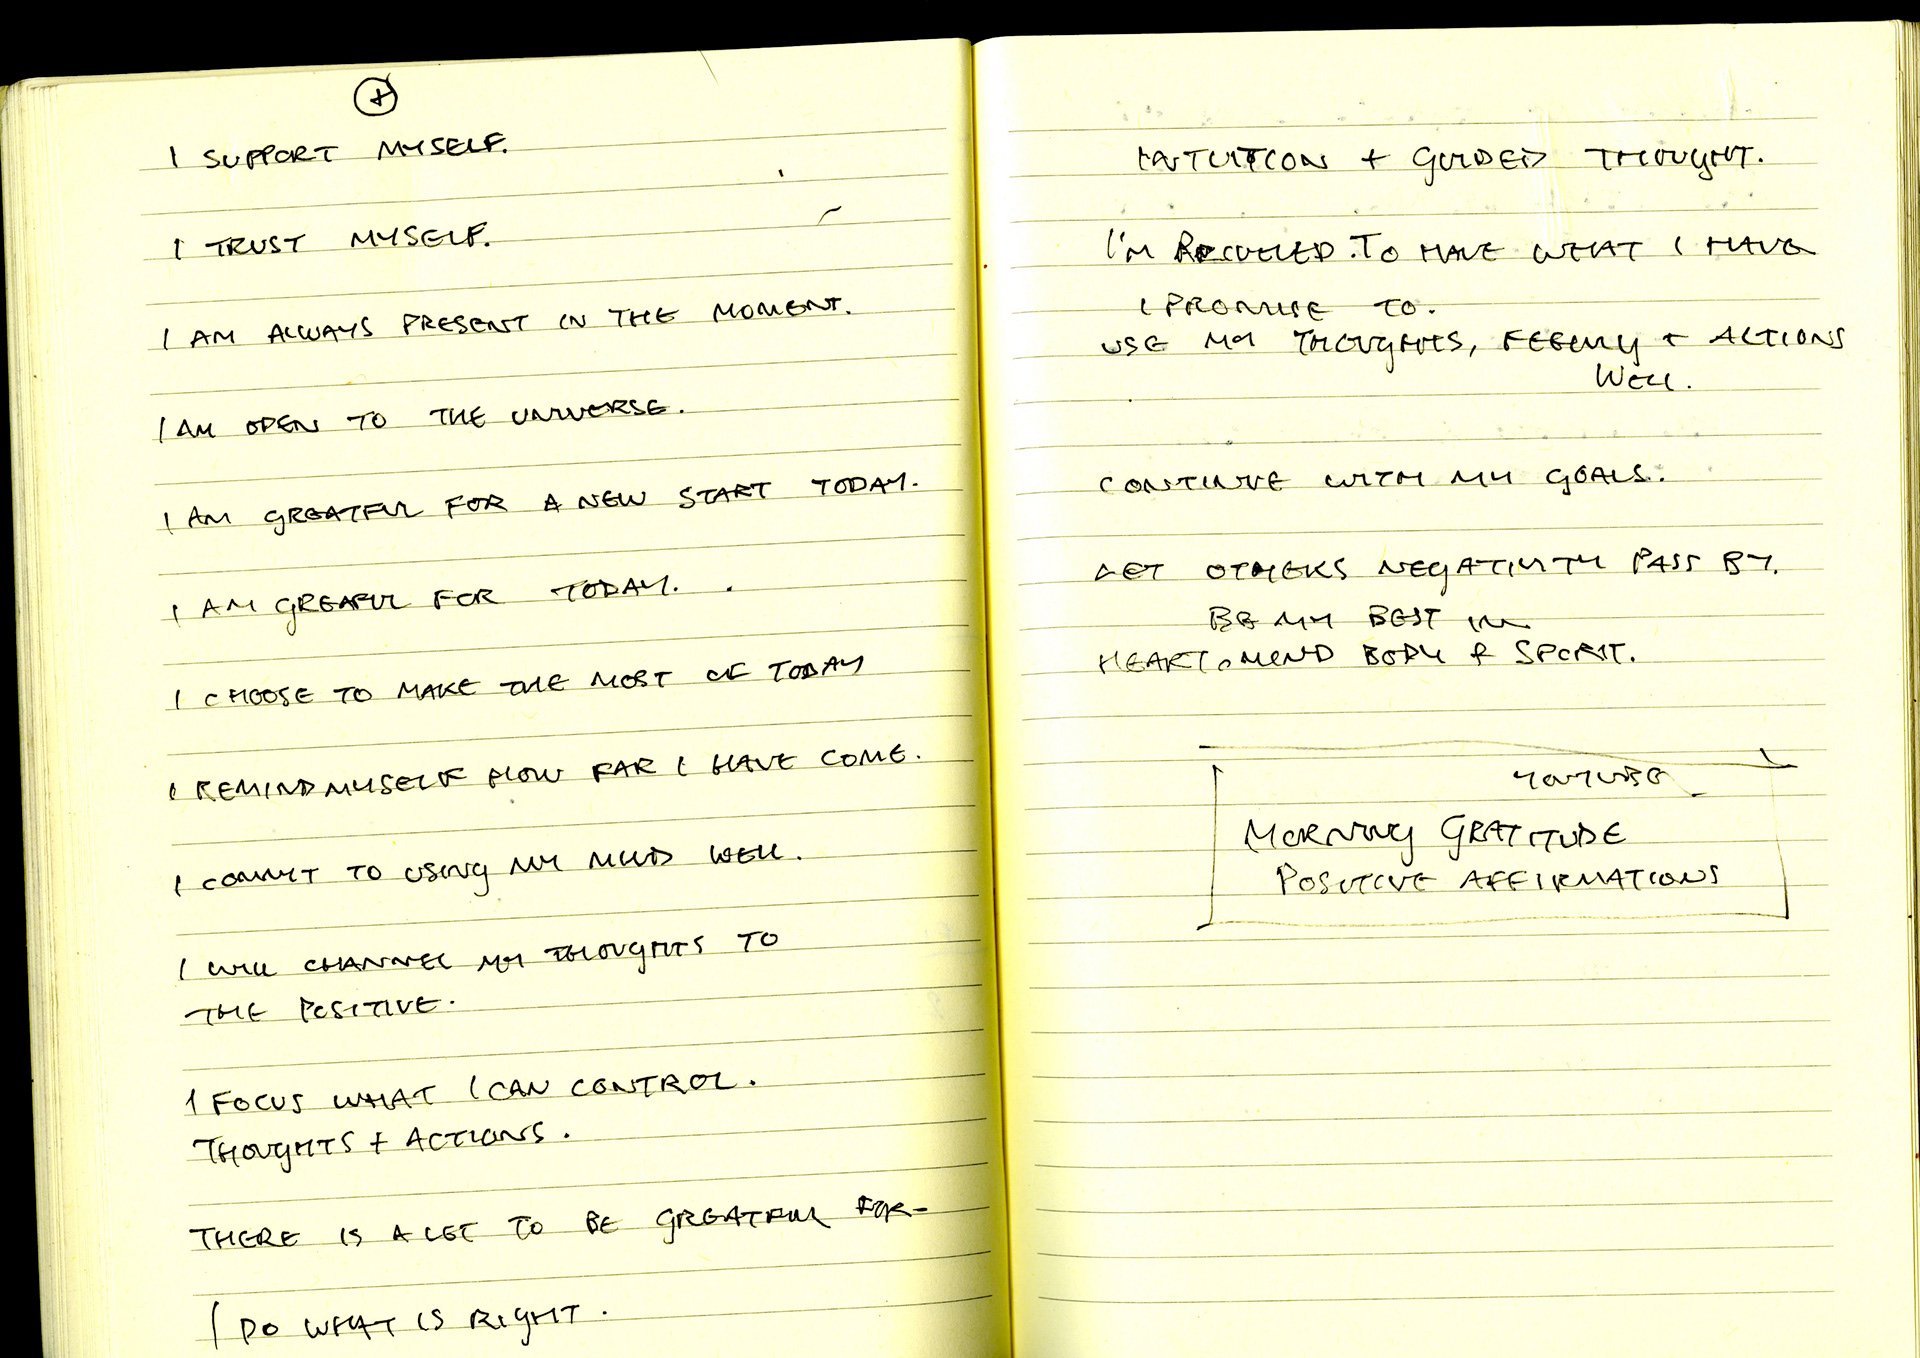 +
I SUPPORT MYSELF.
I TRUST MYSELF.
I AM ALWAYS PRESENT IN THE MOMENT.
I AM OPEN TO THE UNIVERSE.
I AM GREATFUL FOR A NEW START TODAY.
I AM GREAFUL FOR TODAY. .
I CHOOSE TO MAKE THE MOST OF TODAY
I REMIND MYSELF HOW FAR I HAVE COME.
I COMMIT TO USING MY MIND WELL.
I WILL CHANNEL MY THOUGHTS TO
THE POSITIVE.
I FOCUS WHAT I CAN CONTROL.
THOUGHTS + ACTIONS.
THERE IS A LOT TO BE GREATFUL FOR-
I DO WHAT IS RIGHT.
INTUITION + GUIDED THOUGHT.
I'M TO HAVE WHAT I HAVE
I PROMISE TO.
USE MY THOUGHTS, FEELING + ACTIONS
WELL.
CONTINUE WITH MY GOALS.
LET OTHERS NEGATIVITY PASS BY.
BE MY BEST IN
HEART, MIND BODY & SPIRIT.
YOUTUBE
MORNING GRATITUDE
POSITIVE AFFIRMATIONS